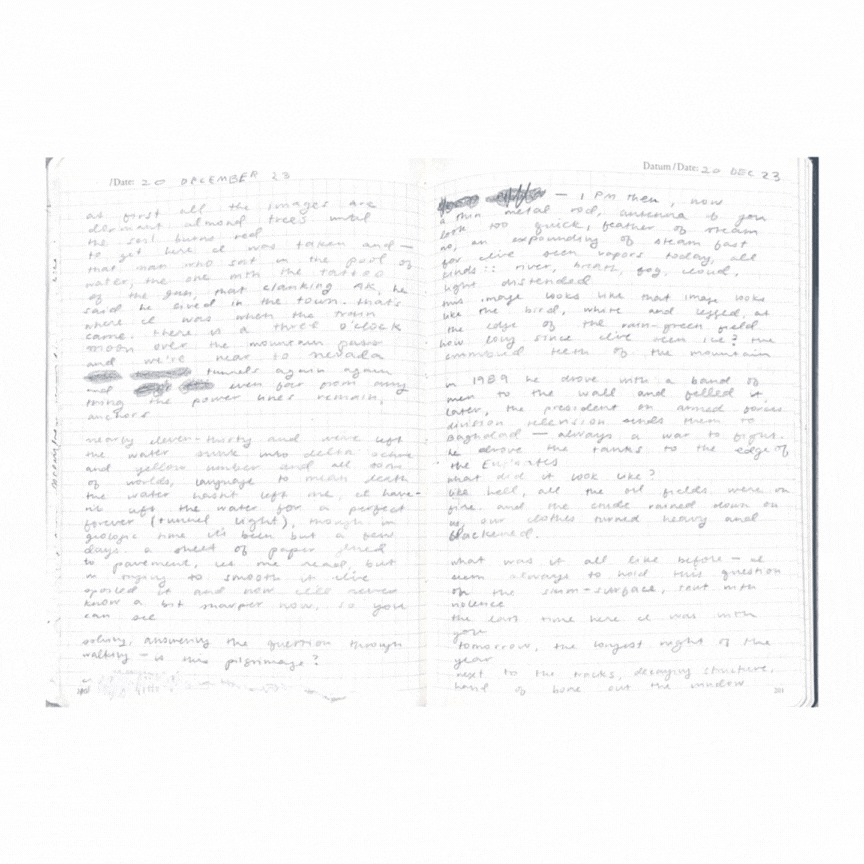 /Date: 20 DECEMBER 23
at first all the images are
dormant almond trees until
the soil burns red
to get here i was taken and —
that man who sat in the pool of
water, the one with the tattoo
of the gun, that clanking AK, he
said he lived in the town. that's
where it was when the train
came. there is a three o'clock
moon over the mountain
and we're near to nevada
tunnels again again
and even far from any
thing the power lines remain,
anchors
nearly eleven-thirty and we've left
the water sunk into delta ochre
and yellow and all
of worlds, language to mean death
the water hasn't left me, i have-
n't left the water for a perfect
forever (tunnel light), though in
geologic time it's been but a few
days. a sheet of paper
to pavement, let me read, but
in trying to smooth it i've
spoiled it and now i'll never
know a bit sharper now, so you
can see
solving, answering the question through
walking — is this pilgrimage?
Datum / Date: 20 DEC 23
— 1 PM then, now
a thin metal rod, antenna if you
look too quick, feather of steam
no, an expounding of steam fast
for i've seen vapors today, all
kinds :: river, breath, fog, cloud,
light distended
this image looks like that image looks
like the bird, white and legged, at
the edge of the rain-green field
how long since i've seen ice? the
teeth of the mountain
in 1989 he drove with a band of
men to the wall and felled it.
later, the president on armed forces
division television sends them to
Baghdad — always a war to fight.
he drove the tanks to the edge of
the Euphrates
what did it look like?
like hell, all the oil fields were on
fire. and the crude rained down on
us, our clothes turned heavy and
blackened.
what was it all like before — i
seem always to hold this question
on the skim-surface, sent with
violence
the last time here i was with
you
tomorrow, the longest night of the
year
next to the tracks, decaying structure,
hand of bone out the window
201